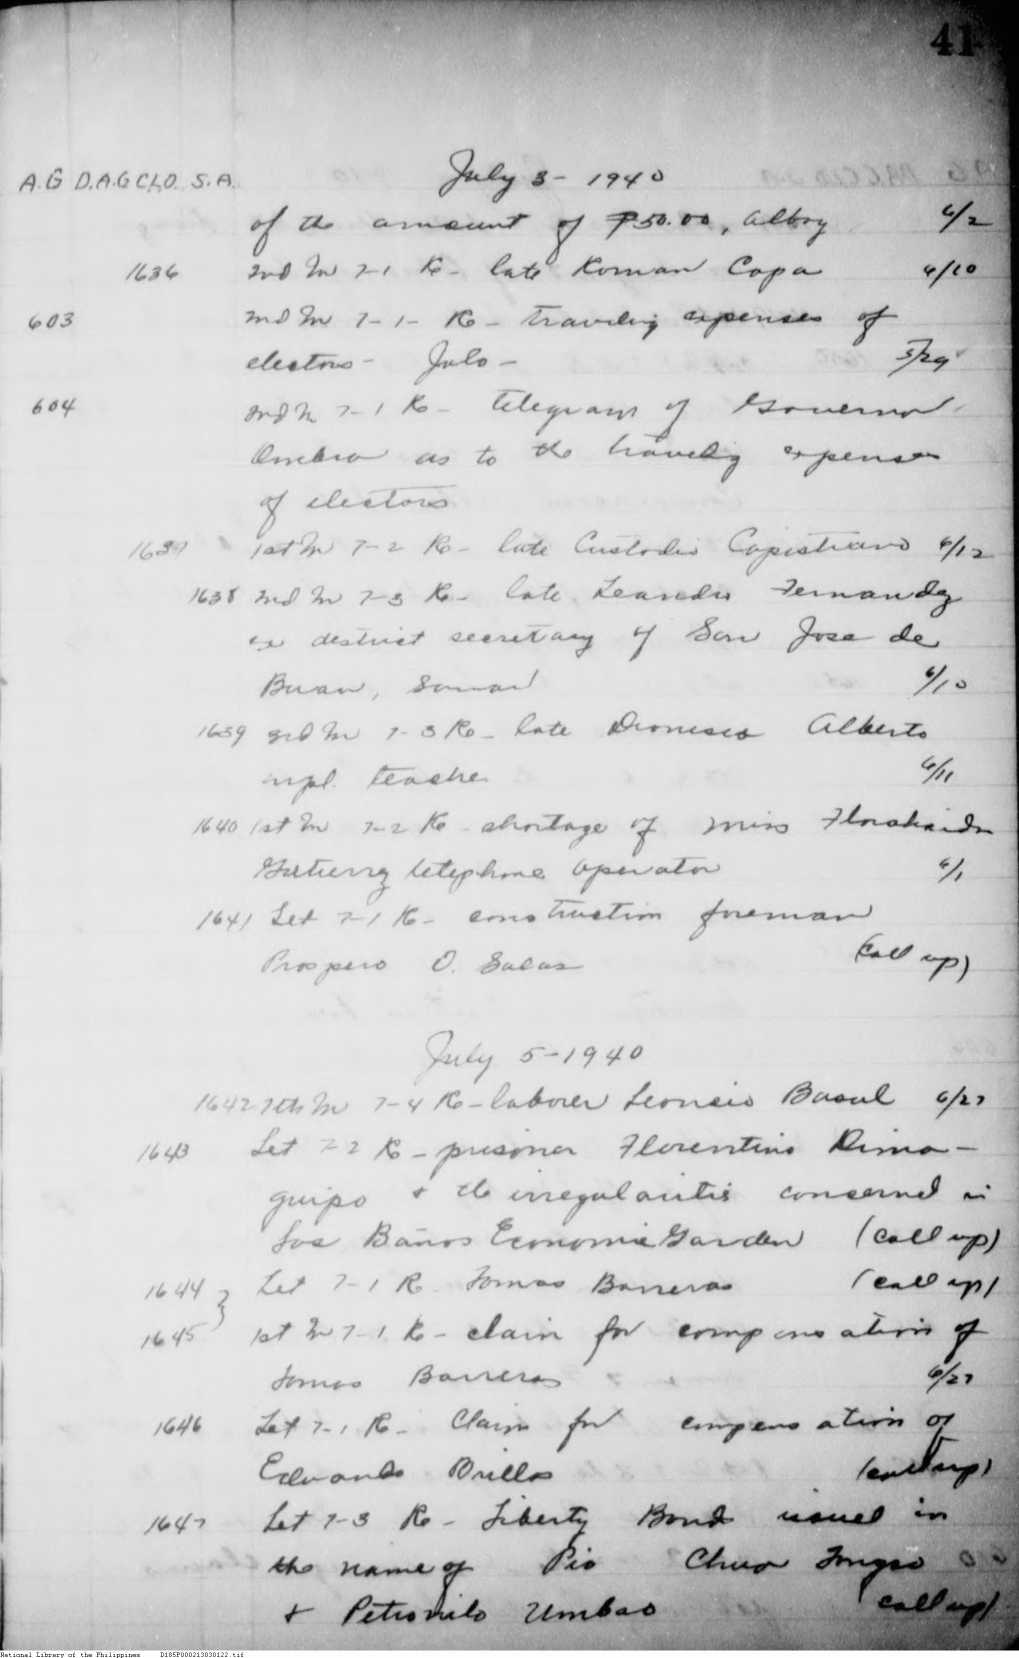 41
A.G D.A.G CLO. S.A. July 3 - 1940
of the amount of ₱50.00, Albay 6/2
1636 2nd In 7-1 Re - late Roman Capa 6/10
603 2nd In 7-1- Re - traveling expenses of
electors - Jolo - 5/29
604 2nd In 7-1 Re - telegram of Governor
as to the traveling expenses
of electors
1637 1st In 7-2 Re - late Custodio Capistrano 6/12
1638 2nd In 7-3 Re - late Leandro Fernandez
ex district secretary of San Jose de
Buan, Samar 6/10
1639 3rd In 7-3 Re - late Dionisio Alberto
mpl. teacher 6/11
1640 1st In 7-2 Re - shortage of Miss
Gutierrez telephone operator 6/1
1641 Let 7-1 Re - construction foreman
Prospero O. Salas (call up)
July 5 - 1940
1642 7th In 7-4 Re - laborer Leoncio Basul 6/27
1643 Let 7-2 Re - prisoner Florentino Dima-
guipo + the irregularities concerned in
Los Baños Economic Garden (call up)
1644 } Let 7-1 Re Tomas Barreras (call up)
1645 1st In 7-1 Re - claim for compensation of
Tomas Barreras 6/27
1646 Let 7-1 Re - Claim for compensation of
Eduardo Brillos (call up)
1647 Let 7-3 Re - Liberty Bond issued in
the name of Pio Chua
+ Petronilo Umbao (call up)
National Library of the Philippines D185P000213030122.tif